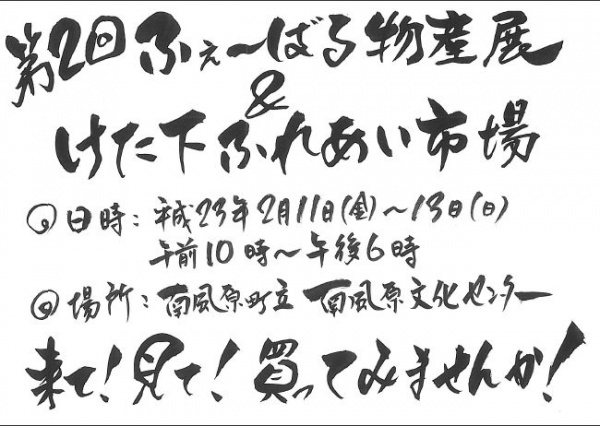 第2回ふぇ〜ばる物産展
&
けた下ふれあい市場
◎日時：平成23年2月11日(金)〜13日(日)
午前10時〜午後6時
◎場所：南風原町立 南風原文化センター
来て！見て！買ってみませんか！